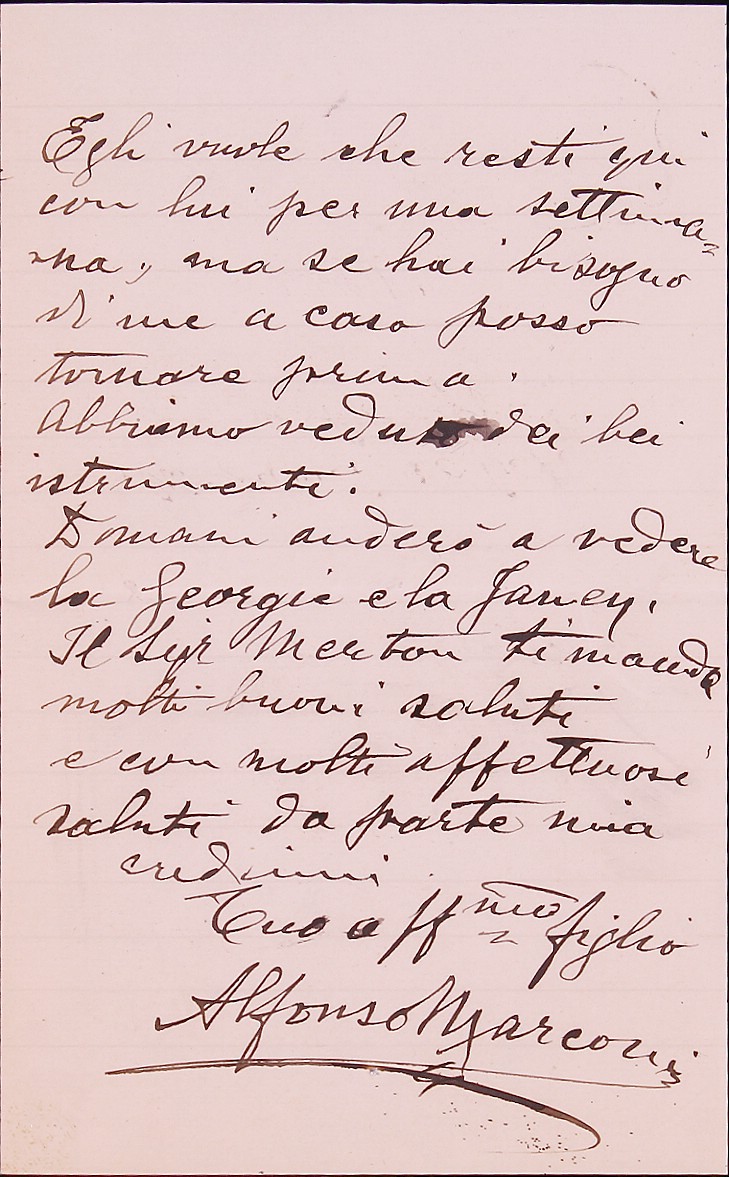 Egli vuole che resti qui
con lui per una settima=
=na, ma se hai bisogno
di me a casa posso
tornare prima.
Abbiamo veduto dei bei
istrumenti.
Domani anderò a vedere
la Georgie e la Janey.
Il Syr Merton ti manda
molti buoni saluti
e con molti affettuosi
saluti da parte mia
credimi
Tuo aff.mo figlio
Alfonso Marconi